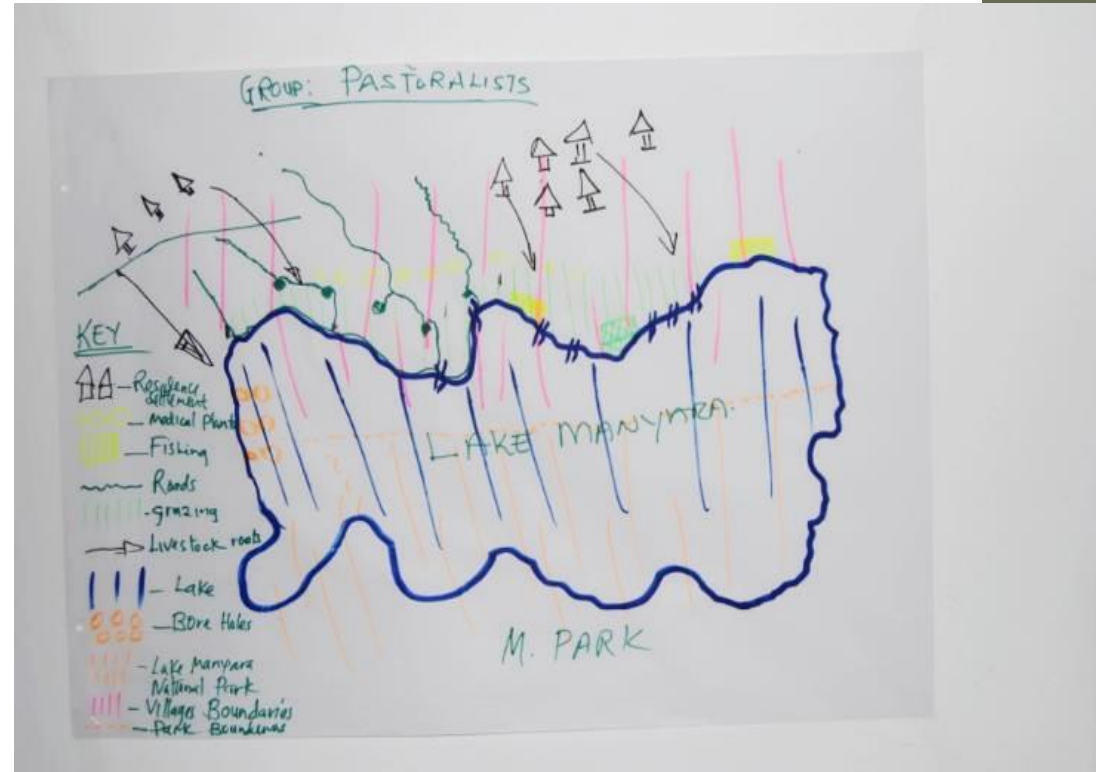 GROUP: PASTORALISTS
KEY
– Residence
settlement
– Medical Plants
– Fishing
– Roads
– grazing
Livestock roots
– Lake
– Bore Holes
– Lake Manyara
National Park
– Villages Boundaries
– Park Boundaries
LAKE MANYARA.
M. PARK